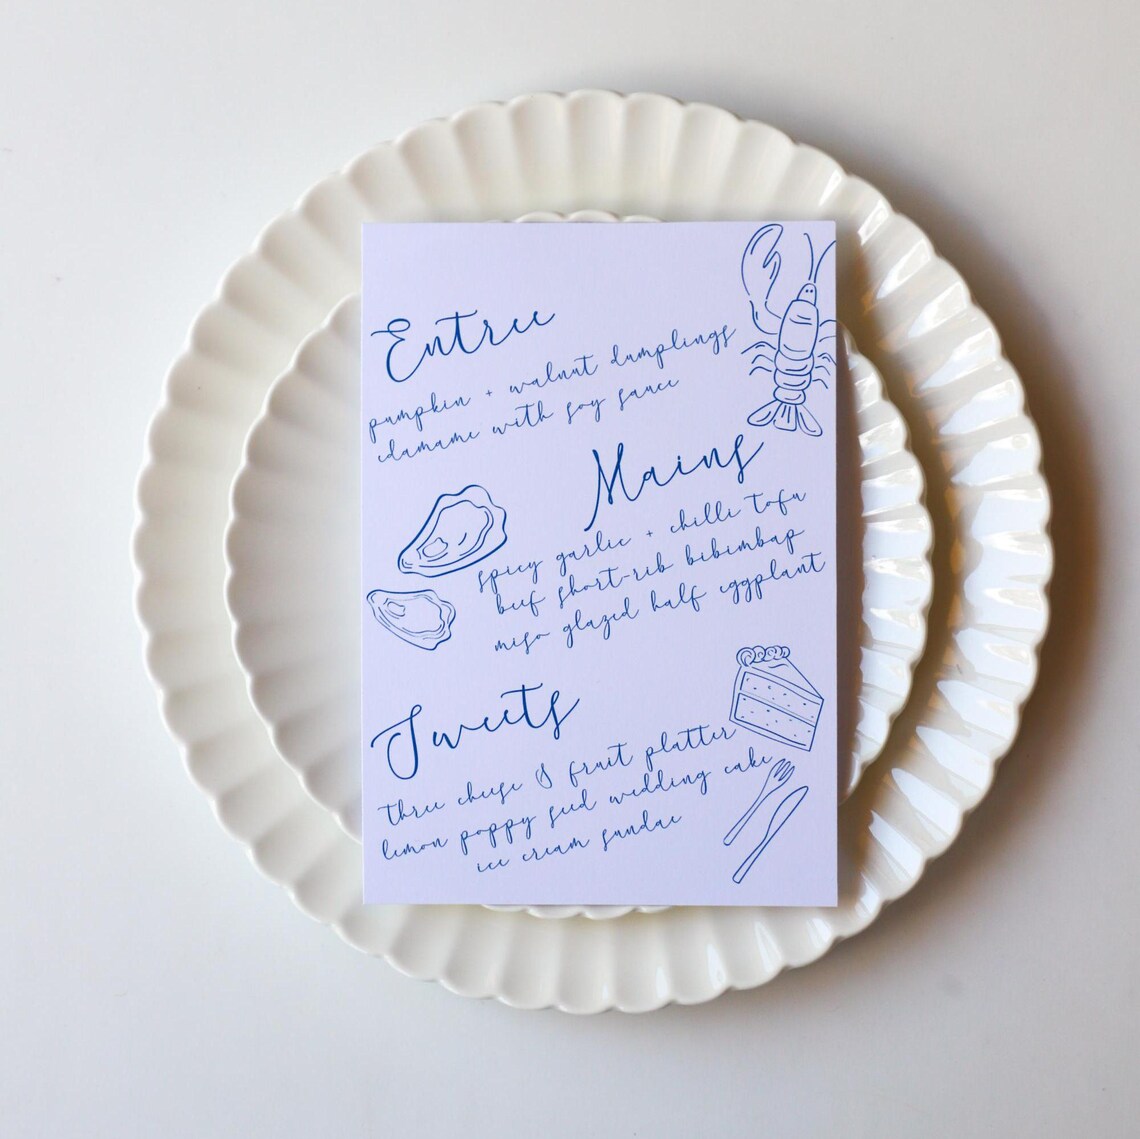 Entree
pumpkin + walnut dumplings
edamame with soy sauce
Mains
spicy garlic + chilli tofu
beef short-rib bibimbap
miso glazed half eggplant
Sweets
three cheese & fruit platter
lemon poppy seed wedding cake
ice cream sundae